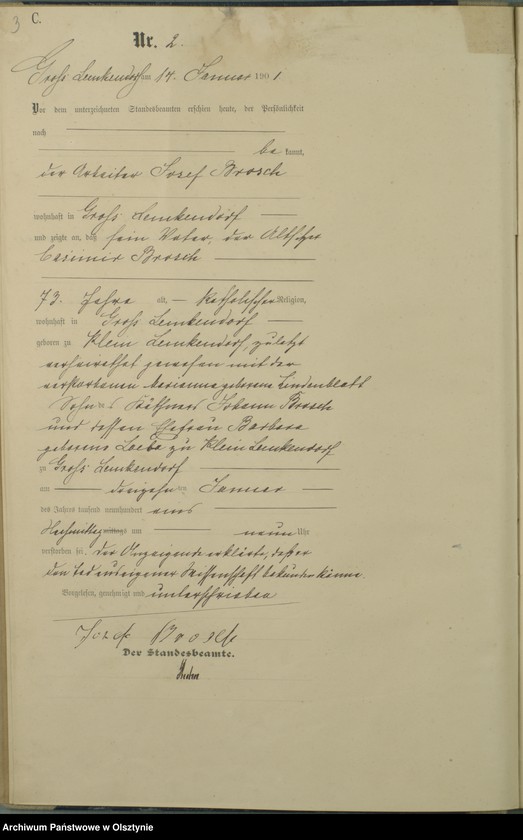 3 C.
Nr. 2.
Gross Lemkendorf am 14. Januar 1901
Vor dem unterzeichneten Standesbeamten erschien heute, der Persönlichkeit
nach
be kannt,
der Arbeiter Josef Brosch
wohnhaft in Gross Lemkendorf
und zeigte an, daß sein Vater, der Altsitzer
Casimir Brosch
73. Jahre alt, katholischer Religion,
wohnhaft in Gross Lemkendorf
geboren zu Klein Lemkendorf, zuletzt
verheirathet gewesen mit der
verstorbenen geborene Lindenblatt
Sohn des Käthners Johann Brosch
und dessen Ehefrau Barbara
geborene zu Klein Lemkendorf
zu Gross Lemkendorf
am dreizehn ten Januar
des Jahres tausend neunhundert eins
Nachmittags mittags um neun Uhr
verstorben sei. Der Anzeigende erklärte, daß er
den Tod aus eigener Wissenschaft bekunden könne
Vorgelesen, genehmigt und unterschrieben
Jozef Brosch
Der Standesbeamte.
Archiwum Państwowe w Olsztynie